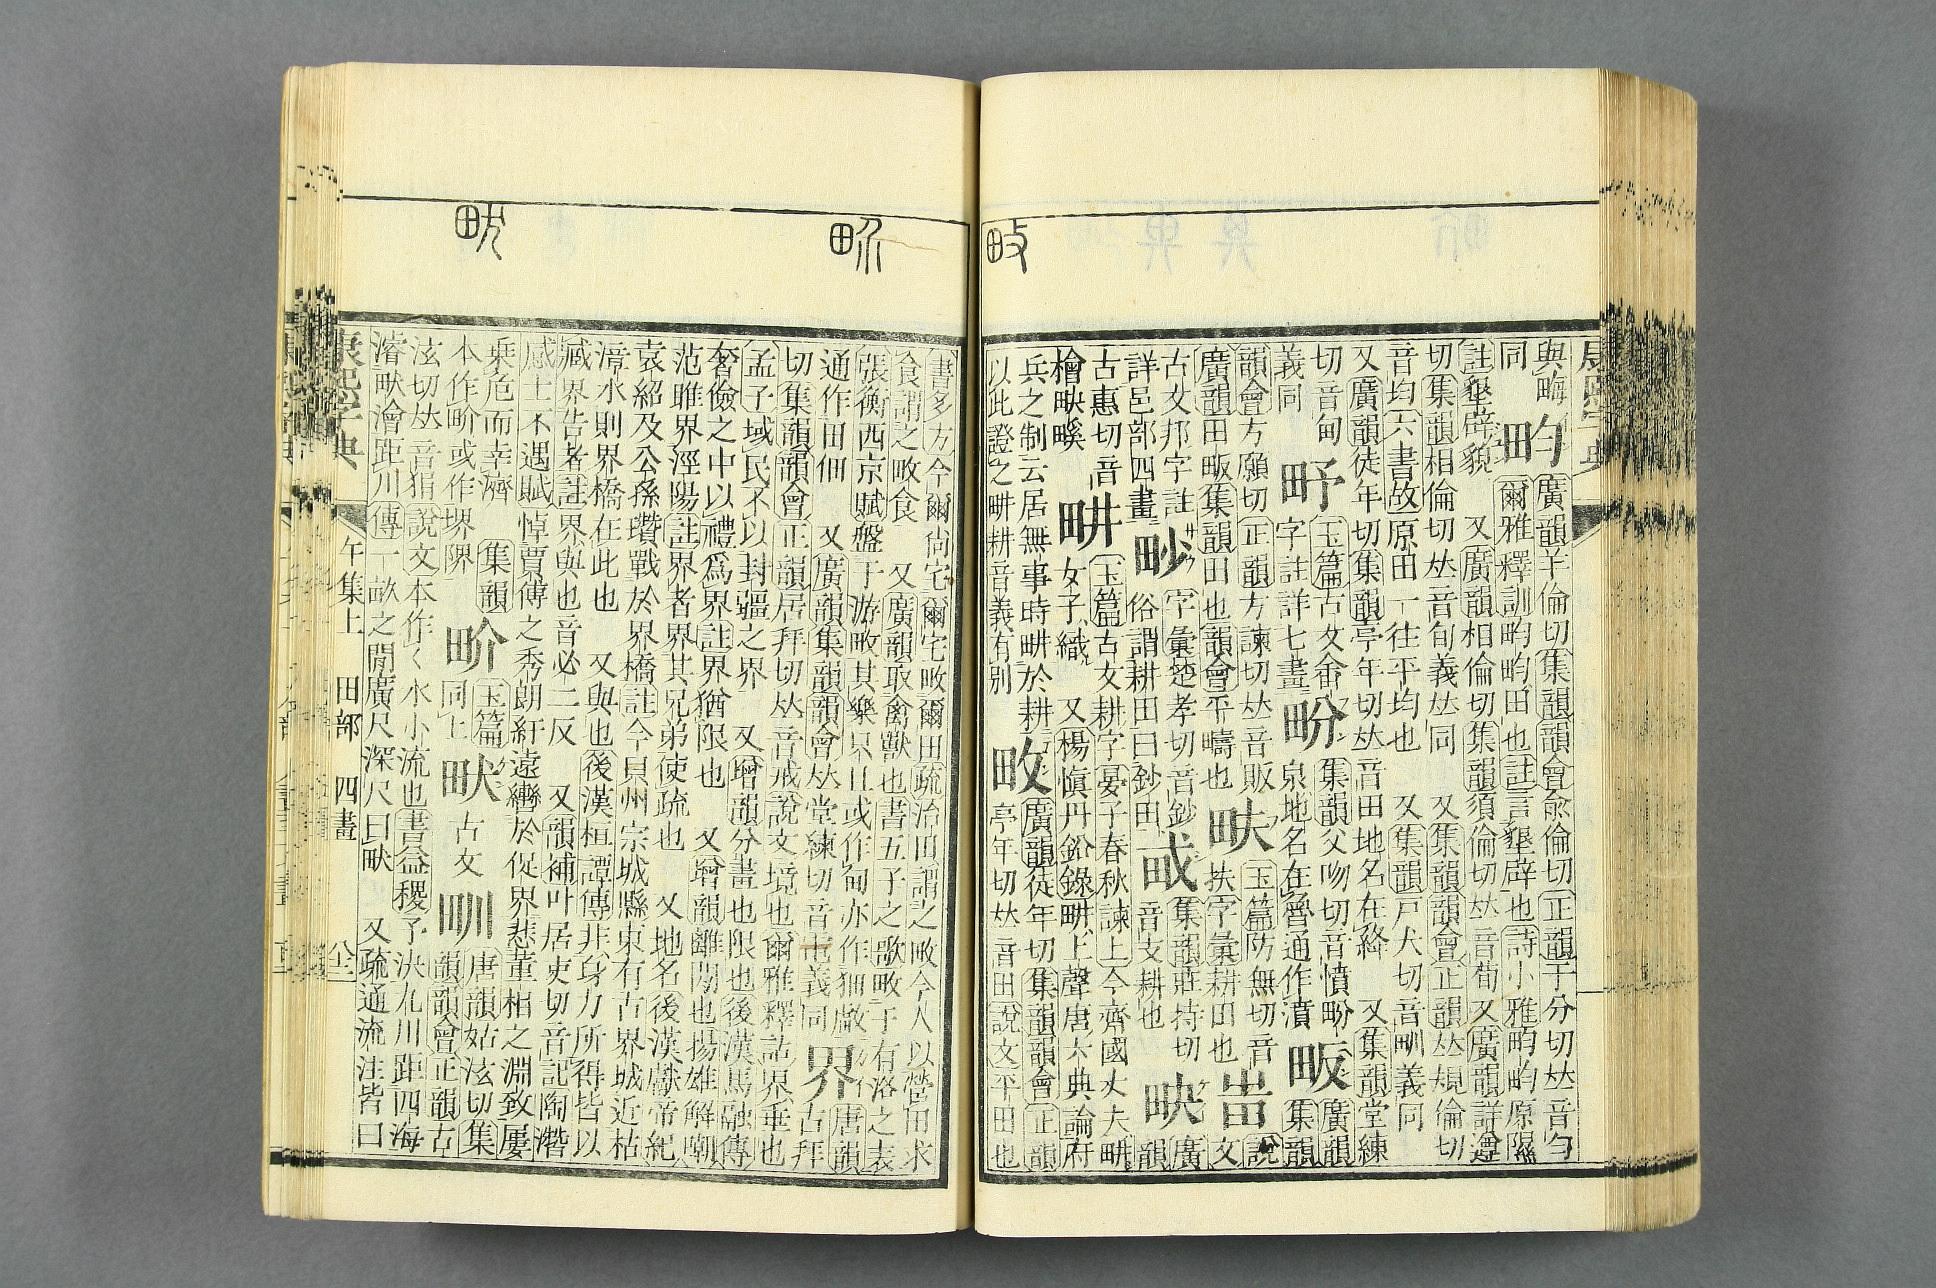 與畮
同
畇
廣韻羊倫切集韻韻會兪倫切正韻于分切𠀤音勻
爾雅釋訓畇畇田也註言墾辟也詩小雅畇畇原隰
註墾辟貌　又廣韻相倫切集韻須倫切𠀤音荀又廣韻詳遵
切集韻相倫切𠀤音旬義𠀤同　又集韻韻會正韻𠀤規倫切
音均六書故原田一往平均也　又集韻戸犬切音甽義同
又廣韻徒年切集韻亭年切𠀤音田地名在絳　又集韻堂練
切音甸
義同
玉篇古文番
字註詳七畫
集韻父吻切音憤
泉地名在魯通作濆
畈
廣韻
集韻
韻會方願切正韻方諫切𠀤音販
廣韻田畈集韻田也韻會平疇也
畉
玉篇防無切音
扶字彙耕田也
說
文
古文邦字註
詳邑部四畫
字彙楚孝切音鈔
俗謂耕田曰鈔田
集韻莊持切
耕也
廣
韻
古惠切音
畊
玉篇古文耕字晏子春秋諫上今齊國丈夫畊
女子織　又楊愼丹鉛錄畊上聲唐六典論府
兵之制云居無事時畊於耕
以此證之畊耕音義有別
畋
廣韻徒年切集韻韻會正韻
亭年切𠀤音田說文平田也
書多方今爾尙宅爾宅畋爾田疏治田謂之畋今人以營田求
食謂之畋食　又廣韻取禽獸也書五子之歌畋于有洛之表
張衡西京賦盤于游畋其樂只且或作甸亦作
通作田佃　又廣韻集韻韻會𠀤堂練切音電義同
界
唐韻
古拜
切集韻韻會正韻居拜切𠀤音戒說文境也爾雅釋詁界垂也
孟子域民不以封疆之界　又增韻分畫也限也後漢馬融傳
奢儉之中以禮爲界註界猶限也　又增韻離閒也揚雄解嘲
范雎界涇陽註界者界其兄弟使疏也　又地名後漢獻帝紀
袁紹及公孫瓚戰於界橋註今貝州宗城縣東有古界城近枯
漳水則界橋在此也　又與也後漢桓譚傳非身力所得皆以
臧界告者註界與也音必二反　又韻補叶居吏切音記陶濳
感士不遇賦悼賈傅之秀朗紆遠轡於促界悲董相之淵致屢
乘危而幸濟　集韻
本作畍或作堺𨺬
畍
玉篇
同上
畎
古文
甽
唐韻姑泫切集
韻韻會正韻古
泫切𠀤音狷說文本作く水小流也書益稷予決九川距四海
濬畎澮距川傳一畝之閒廣尺深尺曰畎　又疏通流注皆曰
康熙字典
午集上　田部　四畫